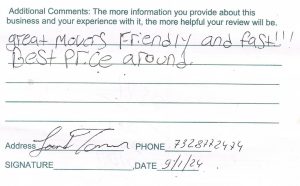 Additional Comments: The more information you provide about this
business and your experience with it, the more helpful your review will be.
great movers Friendly and fast!!!
Best Price around.
Address PHONE 7328772474
SIGNATURE ,DATE 9/1/24